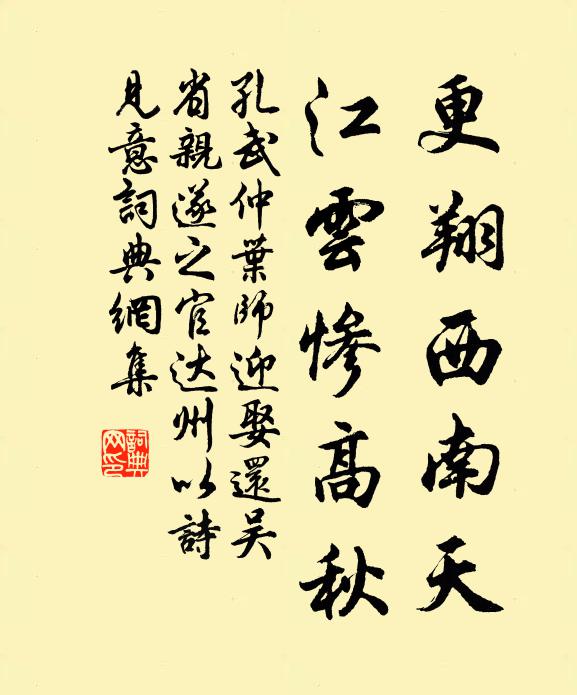 更翔西南天
江雲慘高秋
孔武仲葉師迎娶還吴
省親遂之官达州以詩
見意詞典網集
詞典网印